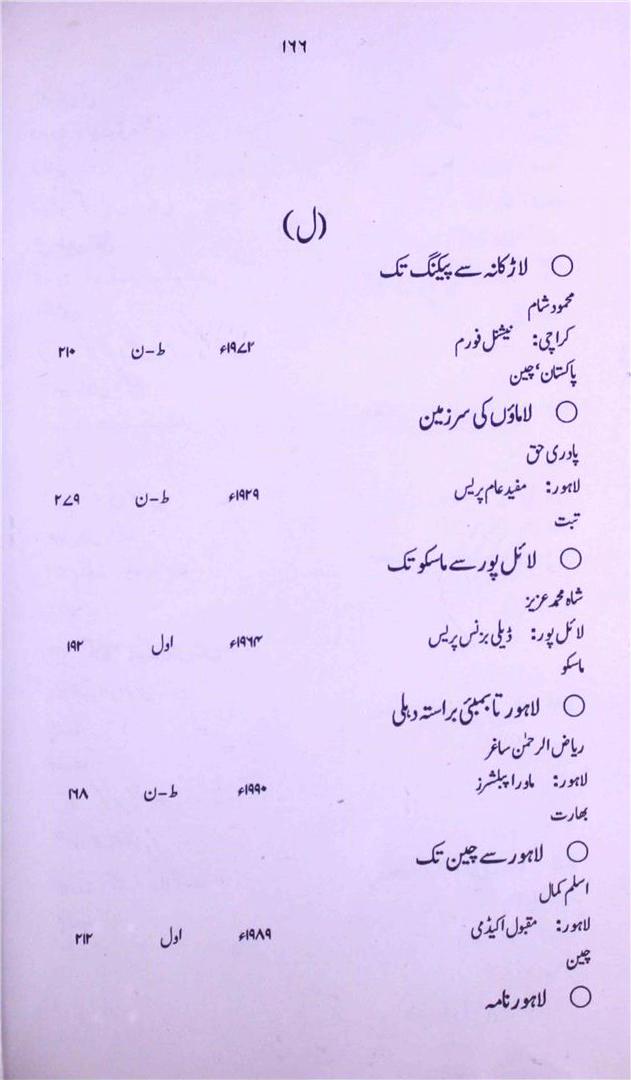 ۱۶۶
(ل)
○ لاڑکانہ سے پیکنگ تک
محمود شام
کراچی: نیشنل فورم ۱۹۷۲ء ط-ن ۲۱۰
پاکستان، چین
○ لاماؤں کی سرزمین
پادری حق
لاہور: مفید عام پریس ۱۹۲۹ء ط-ن ۲۷۹
تبت
○ لائل پور سے ماسکو تک
شاہ محمد عزیز
لائل پور: ڈیلی بزنس پریس ۱۹۶۴ء اول ۱۹۲
ماسکو
○ لاہور تا بمبئی براستہ دہلی
ریاض الرحمٰن ساغر
لاہور: ماورا پبلشرز ۱۹۹۰ء ط-ن ۱۶۸
بھارت
○ لاہور سے چین تک
اسلم کمال
لاہور: مقبول اکیڈمی ۱۹۸۹ء اول ۲۱۲
چین
○ لاہور نامہ